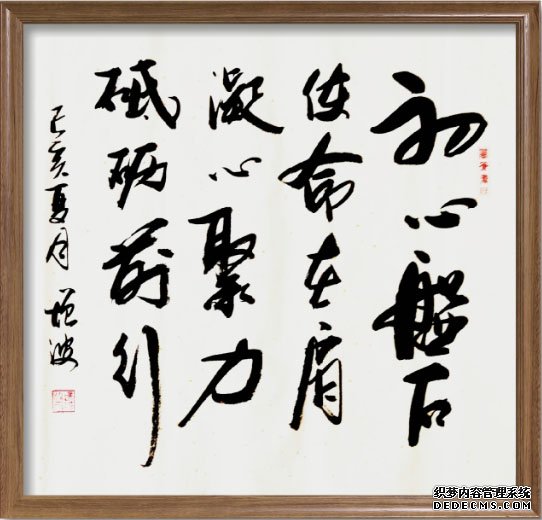 初心盤石
使命在肩
凝心聚力
砥砺前行
己亥夏月 增波
织梦内容管理系统
DEDECMS.COM